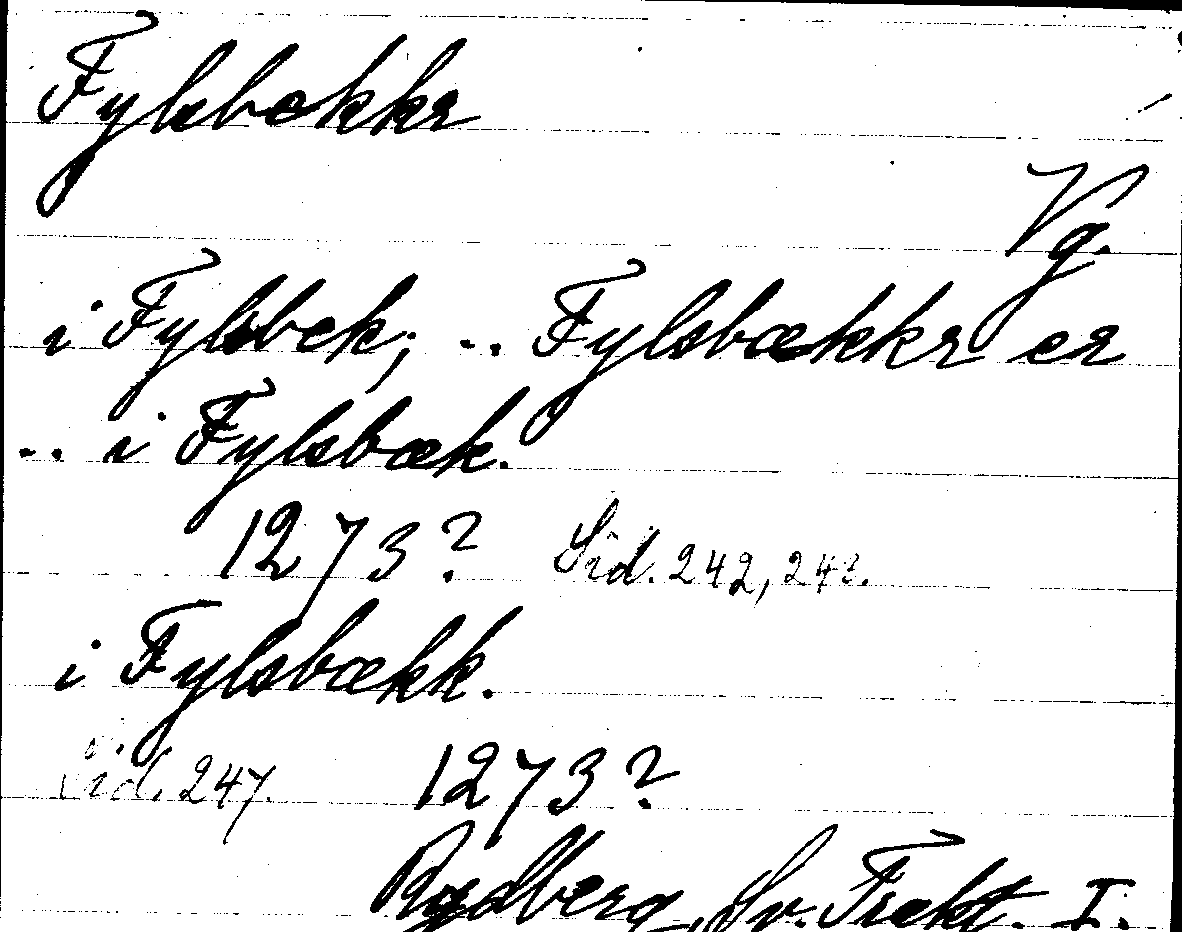 Fylsbækkr
Vg.
i Fylsbek; .. Fylsbækkr er
.. i Fylsbæk.
1273? Sid. 242, 243.
i Fylsbækk.
Sid. 247. 1273?
Rydberg, Sv. Trakt. I.